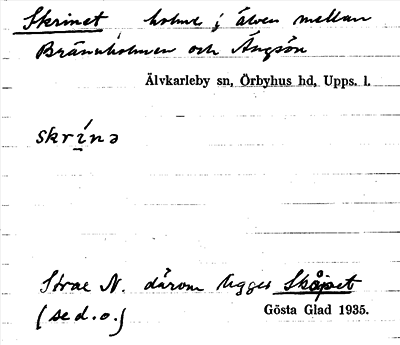 Skrinet, holme i älven mellan
Brännholmen och Ängsön
Älvkarleby sn, Örbyhus hd, Upps. l.
skrí̱nə
Strax N. därom ligger Skåpet
(se d.o.)
Gösta Glad 1935.